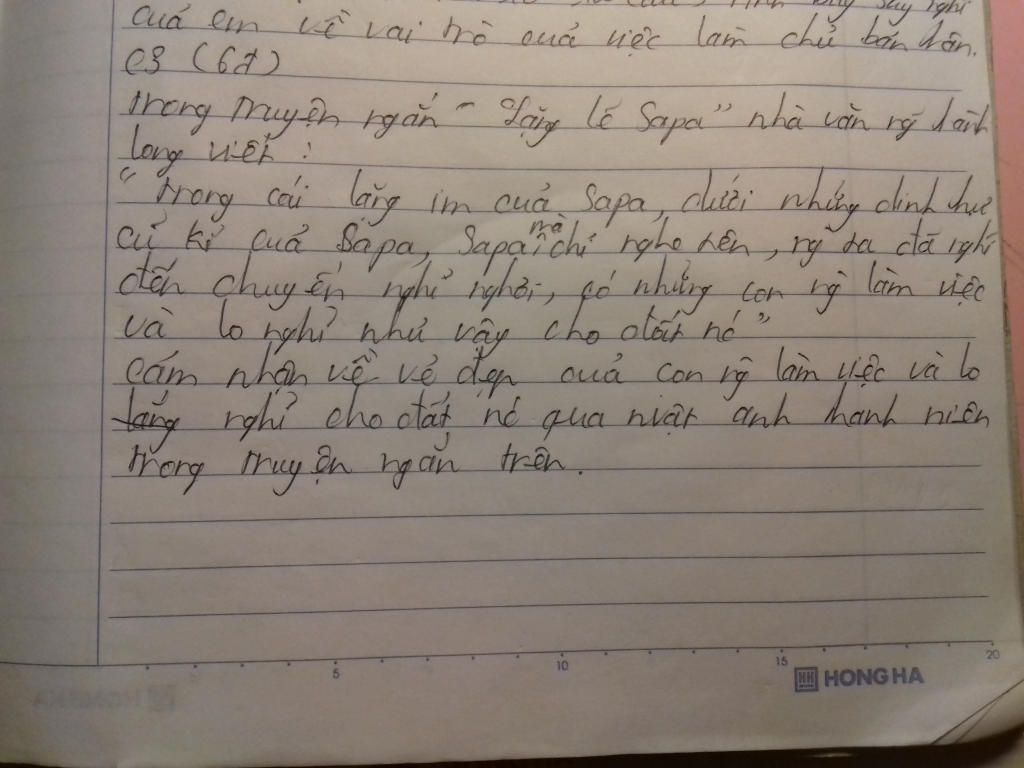 suy nghĩ
cuả em về vai trò cuả việc làm chủ bán thân.
C3 (6đ)
trong truyện ngắn "Lặng lẽ Sapa" nhà văn ng thành
long viết :
"trong cái lặng im cuả Sapa, dưới những dinh thự
cũ kĩ cuả Sapa, Sapa mà chỉ nghe tên, ng ta đã nghĩ
đến chuyện nghỉ nghơi, có những con ng làm việc
và lo nghĩ như vậy cho đất nc"
cảm nhận về vẻ đẹp cuả con ng làm việc và lo
nghĩ cho đất nc qua nvật anh thanh niên
trong truyện ngắn trên.
5 10 15 20
HH HONG HA